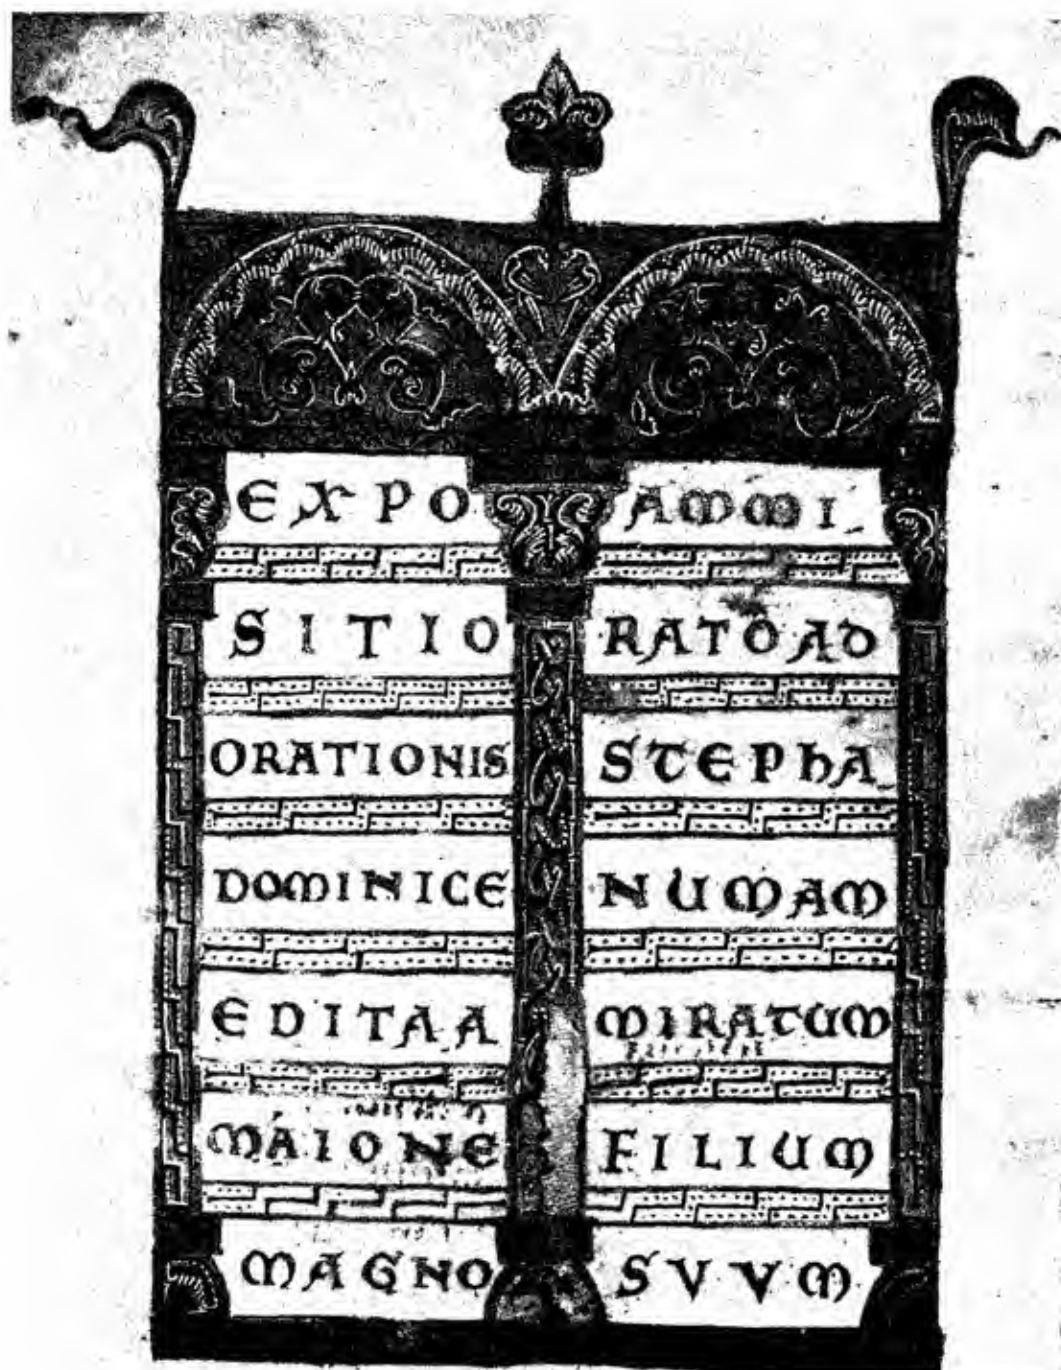 EXPO
SITIO
ORATIONIS
DOMINICE
EDITA A
MAIONE
MAGNO
AMMI
RATO AD
STEPhA
NUM AM
MIRATUM
FILIUM
SVVM